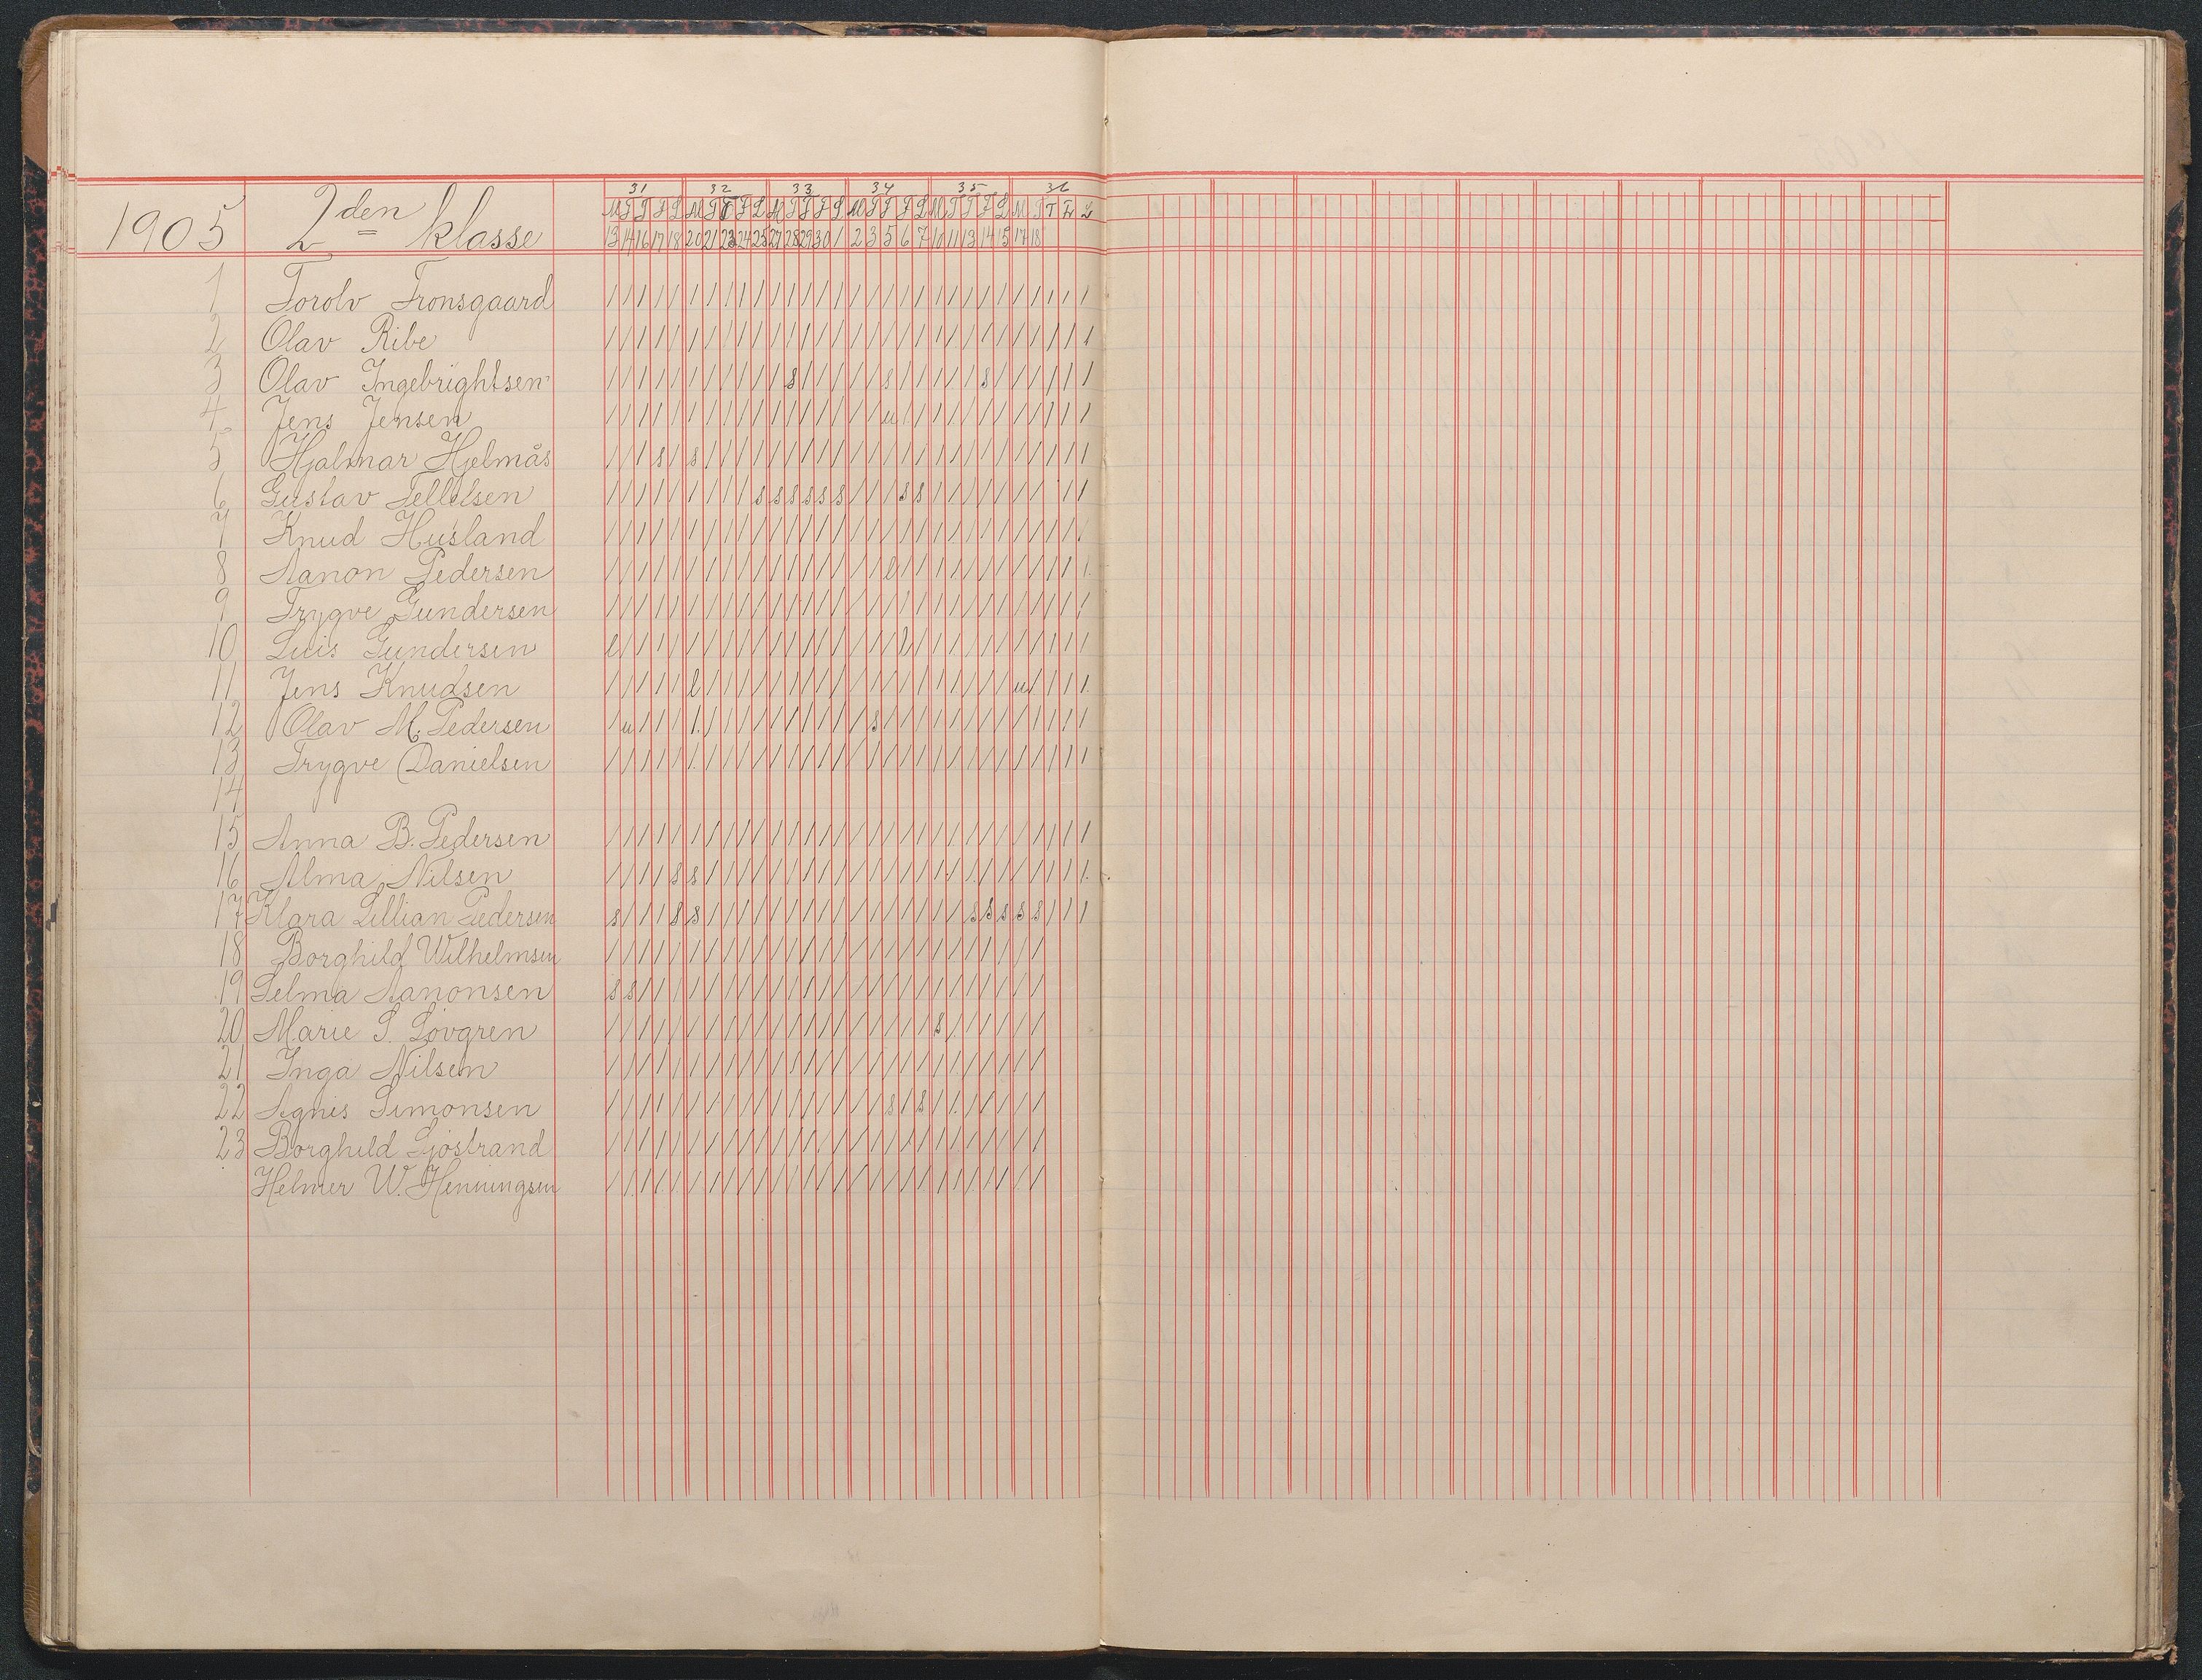 31 32 33 34 35 36
1905 2den klasse M T T F L M T T F L M T T F L M T T F L M T T F L M T T F L
13 14 16 17 18 20 21 23 24 25 27 28 29 30 1 2 3 5 6 7 10 11 13 14 15 17 18
1 Torolv Tronsgaard / / / / / / / / / / / / / / / / / / / / / / / / / / / / / /
2 Olav Ribe / / / / / / / / / / / / / / / / / / / / / / / / / / / / / /
3 Olav Ingebrightsen / / / / / / / / / / / s / / / / / s / / / / / s / / / / / /
4 Jens Jensen / / / / / / / / / / / / / / / / / u / / / / / / / / / / / /
5 Hjalmar Hjelmås / / / s / s / / / / / / / / / / / / / / / / / / / / / / / /
6 Gustav Tellefsen / / / / / / / / / s s s s s s / / / s s / / / / / / / / /
7 Knud Husland / / / / / / / / / / / / / / / / / / / / / / / / / / / / / /
8 Aanon Pedersen / / / / / / / / / / / / / / / / / l / / / / / / / / / / / /
9 Trygve Gundersen / / / / / / / / / / / / / / / / / / / / / / / / / / / / / /
10 Luis Gundersen l / / / / / / / / / / / / / / / / / l / / / / / / / / / / /
11 Jens Knudsen / / / / / l / / / / / / / / / / / / / / / / / / / u / / / /
12 Olav M. Pedersen / u / / / / / / / / / / / / / / s / / / / / / / / / / / / /
13 Trygve Danielsen / / / / / / / / / / / / / / / / / / / / / / / / / / / / / /
14
15 Anna B. Pedersen / / / / / / / / / / / / / / / / / / / / / / / / / / / / / /
16 Alma Nilsen / / / / s s / / / / / / / / / / / / / / / / / / / / / / / /
17 Klara Lillian Pedersen s / / / s s / / / / / / / / / / / / / / / / s s s s s / / /
18 Borghild Wilhelmsen / / / / / / / / / / / / / / / / / / / / / / / / / / /
19 Selma Aanonsen s s / / / / / / / / / / / / / / / / / / / / / / / / /
20 Marie S. Lövgren / / / / / / / / / / / / / / / / / / / / s / / / / / /
21 Inga Nilsen / / / / / / / / / / / / / / / / / / / / / / / / / / /
22 Agnis Simonsen / / / / / / / / / / / / / / / / / s / s / / / / / / /
23 Borghild Sjöstrand / / / / / / / / / / / / / / / / / / / / / / / / / / /
Helmer W. Henningsen / / / / / / / / / / / / / / / / / / / / / / / / / / /